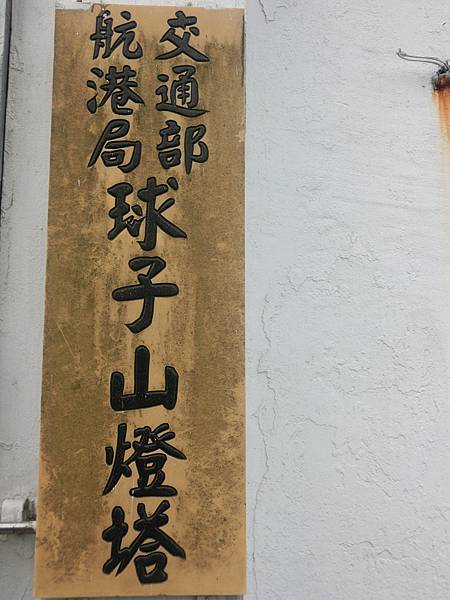 交通部
航港局
球子山燈塔